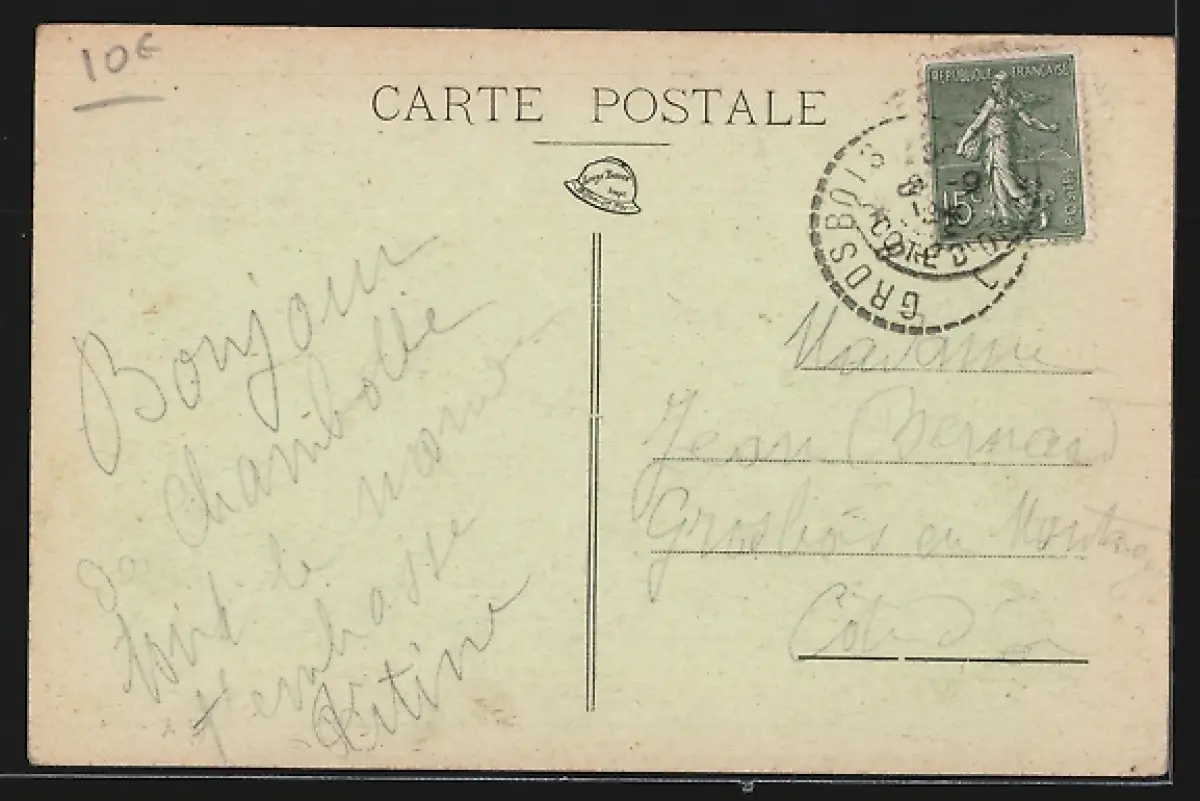 10€
CARTE POSTALE
REPUBLIQUE FRANÇAISE
15c
POSTES
GROSBOIS
COTE D'OR
Bonjour
de Chambolle
tout le monde
t'embrasse
Titine
Madame
Jean Bernard
Grosbois en Montag
Côte d'or